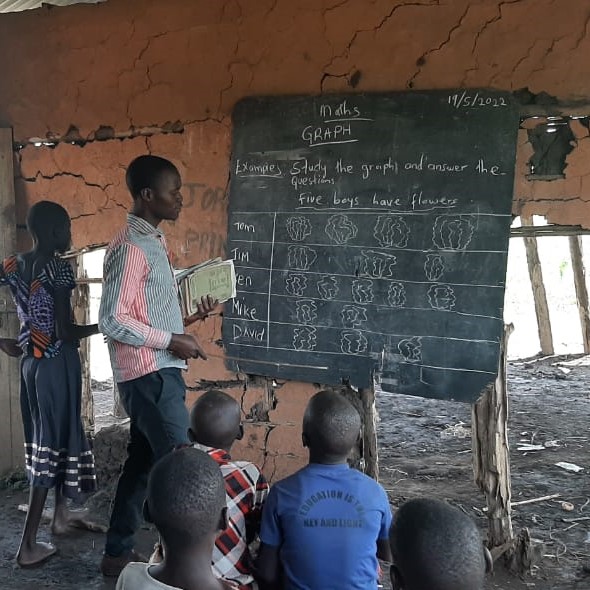 19/5/2022
Maths
GRAPH
Examples Study the graph and answer the
questions
Five boys have flowers
Tom
JIM
Ken
Mike
DAVID
EDUCATION IS THE
KEY AND LIGHT